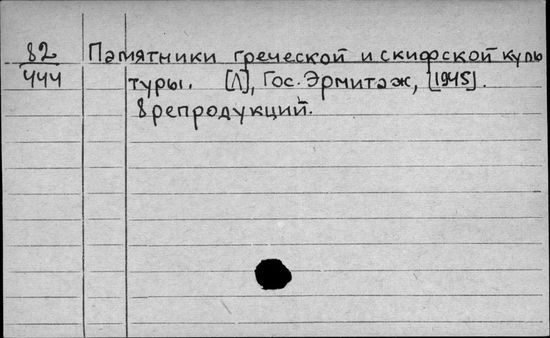 82 Памятники греческой и скифской куль
444 туры. [Л], Гос. Эрмитаж, [1945].
8 репродукций.